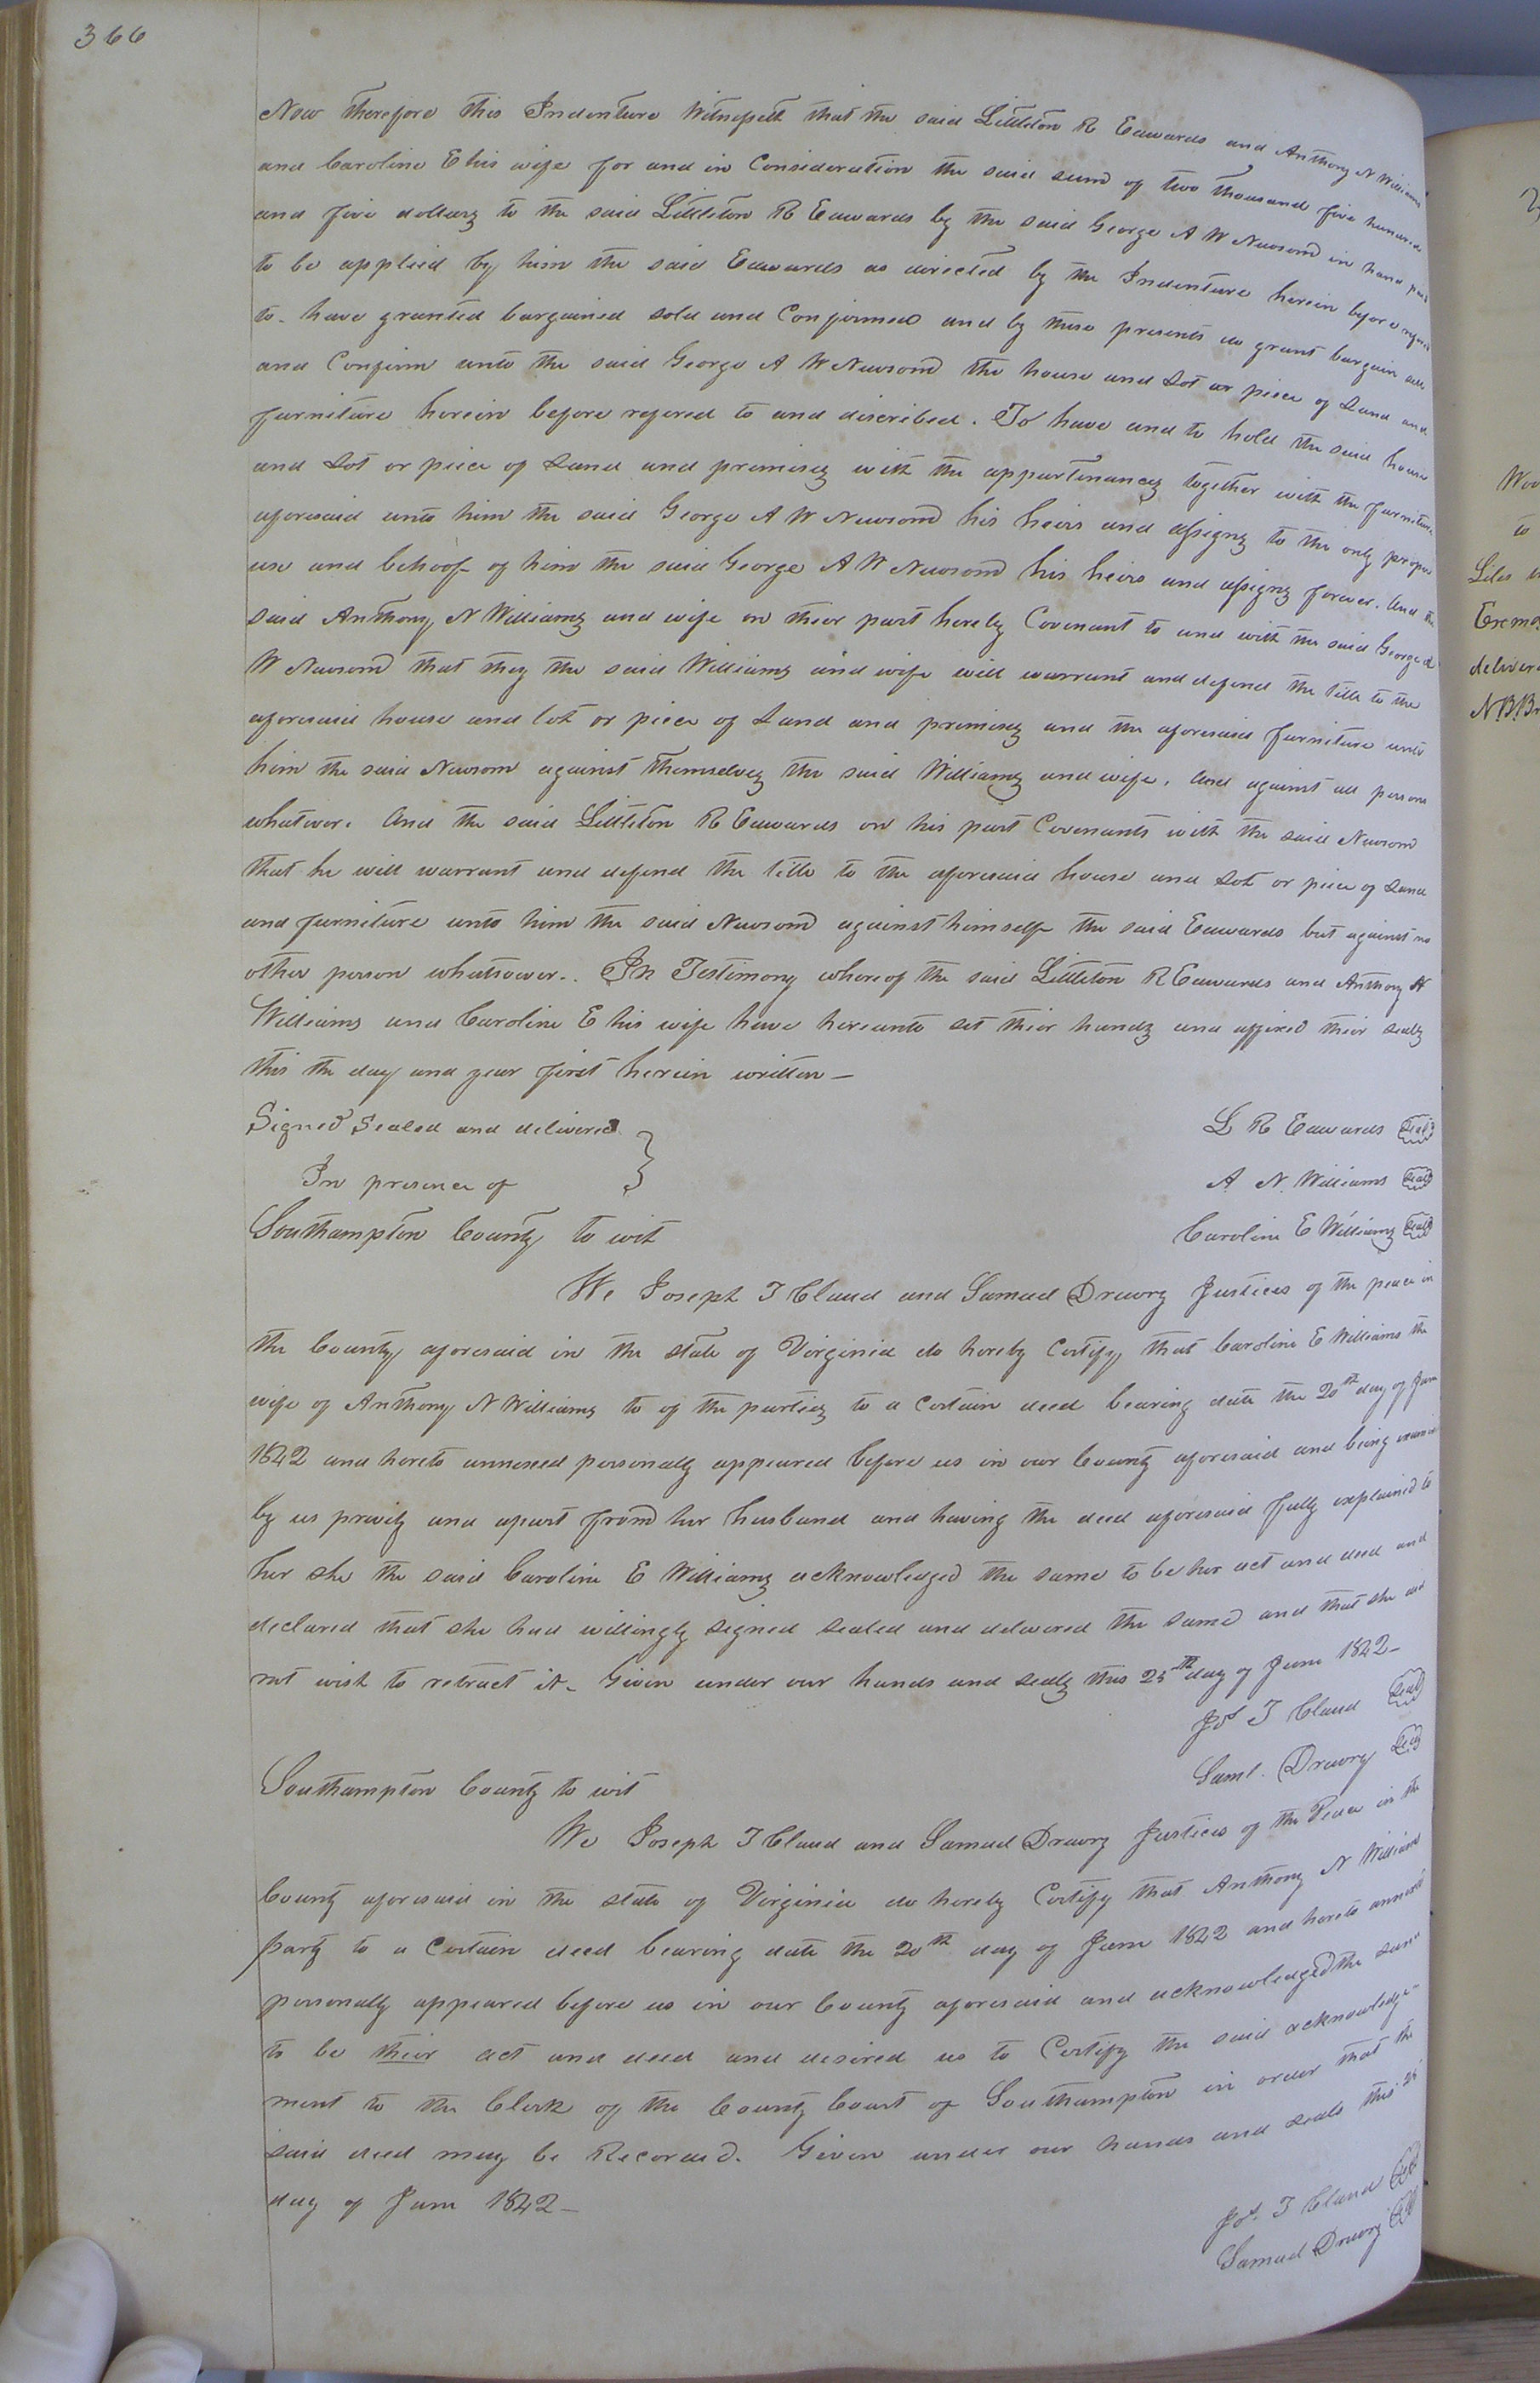 366
Now therefore this Indenture Witnesseth that the said Littleton R Edwards and Anthony N Williams
and Caroline E his wife for and in Consideration the said sum of two Thousand five hundred
and five dollars to the said Littleton R Edwards by the said George A W Newsom in hand paid
to be applied by him the said Edwards as directed by the Indenture herein before
to have granted bargained sold and Confirmed and by these presents do grant bargain sell
and Confirm unto the said George A W Newsom the house and Lot or piece of Land and
furniture herein before refered to and discribed. To have and to hold the said house
and Lot or piece of Land and premises with the appurtenances together with the furniture
aforesaid unto him the said George A W Newsom his heirs and assigns to the only proper
use and behoof of him the said George A W Newsom his heirs and assigns forever. And the
said Anthony N Williams and wife on their part hereby Covenant to and with the said George A
W Newsom that they the said Williams and wife will warrant and defend the title to the
aforesaid house and lot or piece of Land and premises and the aforesaid furniture unto
him the said Newsom against themselves the said Williams and wife. And against all persons
whatever. And the said Littleton R Edwards on his part Covenants with the said Newsom
that he will warrant and defend the title to the aforesaid house and Lot or piece of Land
and furniture unto him the said Newsom against himself the said Edwards but against no
other person whatsoever.. In Testimony whereof the said Littleton R Edwards and Anthony N
Williams and Caroline E his wife have hereunto set their hands and affixed their seals
this the day and year first herein written —
Signed Sealed and delivered
L R Edwards Seal
In presence of
A. N. Williams Seal
Southampton County to wit
Caroline E Williams Seal
We Joseph T Claud and Samuel Drewry Justices of the peace in
the County aforesaid in the state of Virginia do hereby Certify that Caroline E Williams the
wife of Anthony N Williams to of the parties to a Certain deed bearing date the 20th day of June
1842 and hereto annexed personally appeared before us in our County aforesaid and being examined
by us privily and apart from her husband and having the deed aforesaid fully explained to
her she the said Caroline E Williams acknowledged the same to be her act and deed and
declared that she had willingly signed sealed and delivered the same and that she did
not wish to retract it. Given under our hands and seals this 25th day of June 1842 —
Jos T Claud Seal
Saml. Drewry Seal
Southampton County to wit
We Joseph T Claud and Samuel Drewry Justices of the Peace in the
County aforesaid in the state of Virginia do hereby Certify that Anthony N Williams
party to a Certain deed bearing date the 20th day of June 1842 and hereto annexed
personally appeared before us in our County aforesaid and acknowledged the same
to be their act and deed and desired us to Certify the said acknowledge-
ment to the Clerk of the County Court of Southampton in order that the
said deed may be Recorded. Given under our hands and seals this 25
day of June 1842 —
Jos. T Claud Seal
Samuel Drewry Seal
to